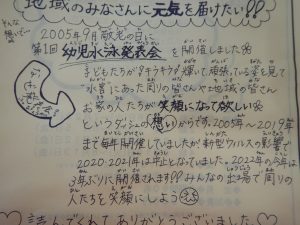 地域のみなさんに元気を届けたい!!
そんな
想いで…
2005年9月敬老の日に
第1回 幼児水泳発表会 を開催しました
子どもたちが“キラキラ”輝いて頑張っている姿を見て
水害にあった周りの皆さんや地域の皆さん
お家の人たちが笑顔になって欲しい
というダッシュの想いからです。2005年〜2019年
まで毎年開催していましたが、新型ウイルスの影響で
2020・2021年は中止となっていました。2022年の今年は
3年ぶりに開催されます!!みんなの出場で周りの
人たちも笑顔にしよう
読んでくれてありがとうございました